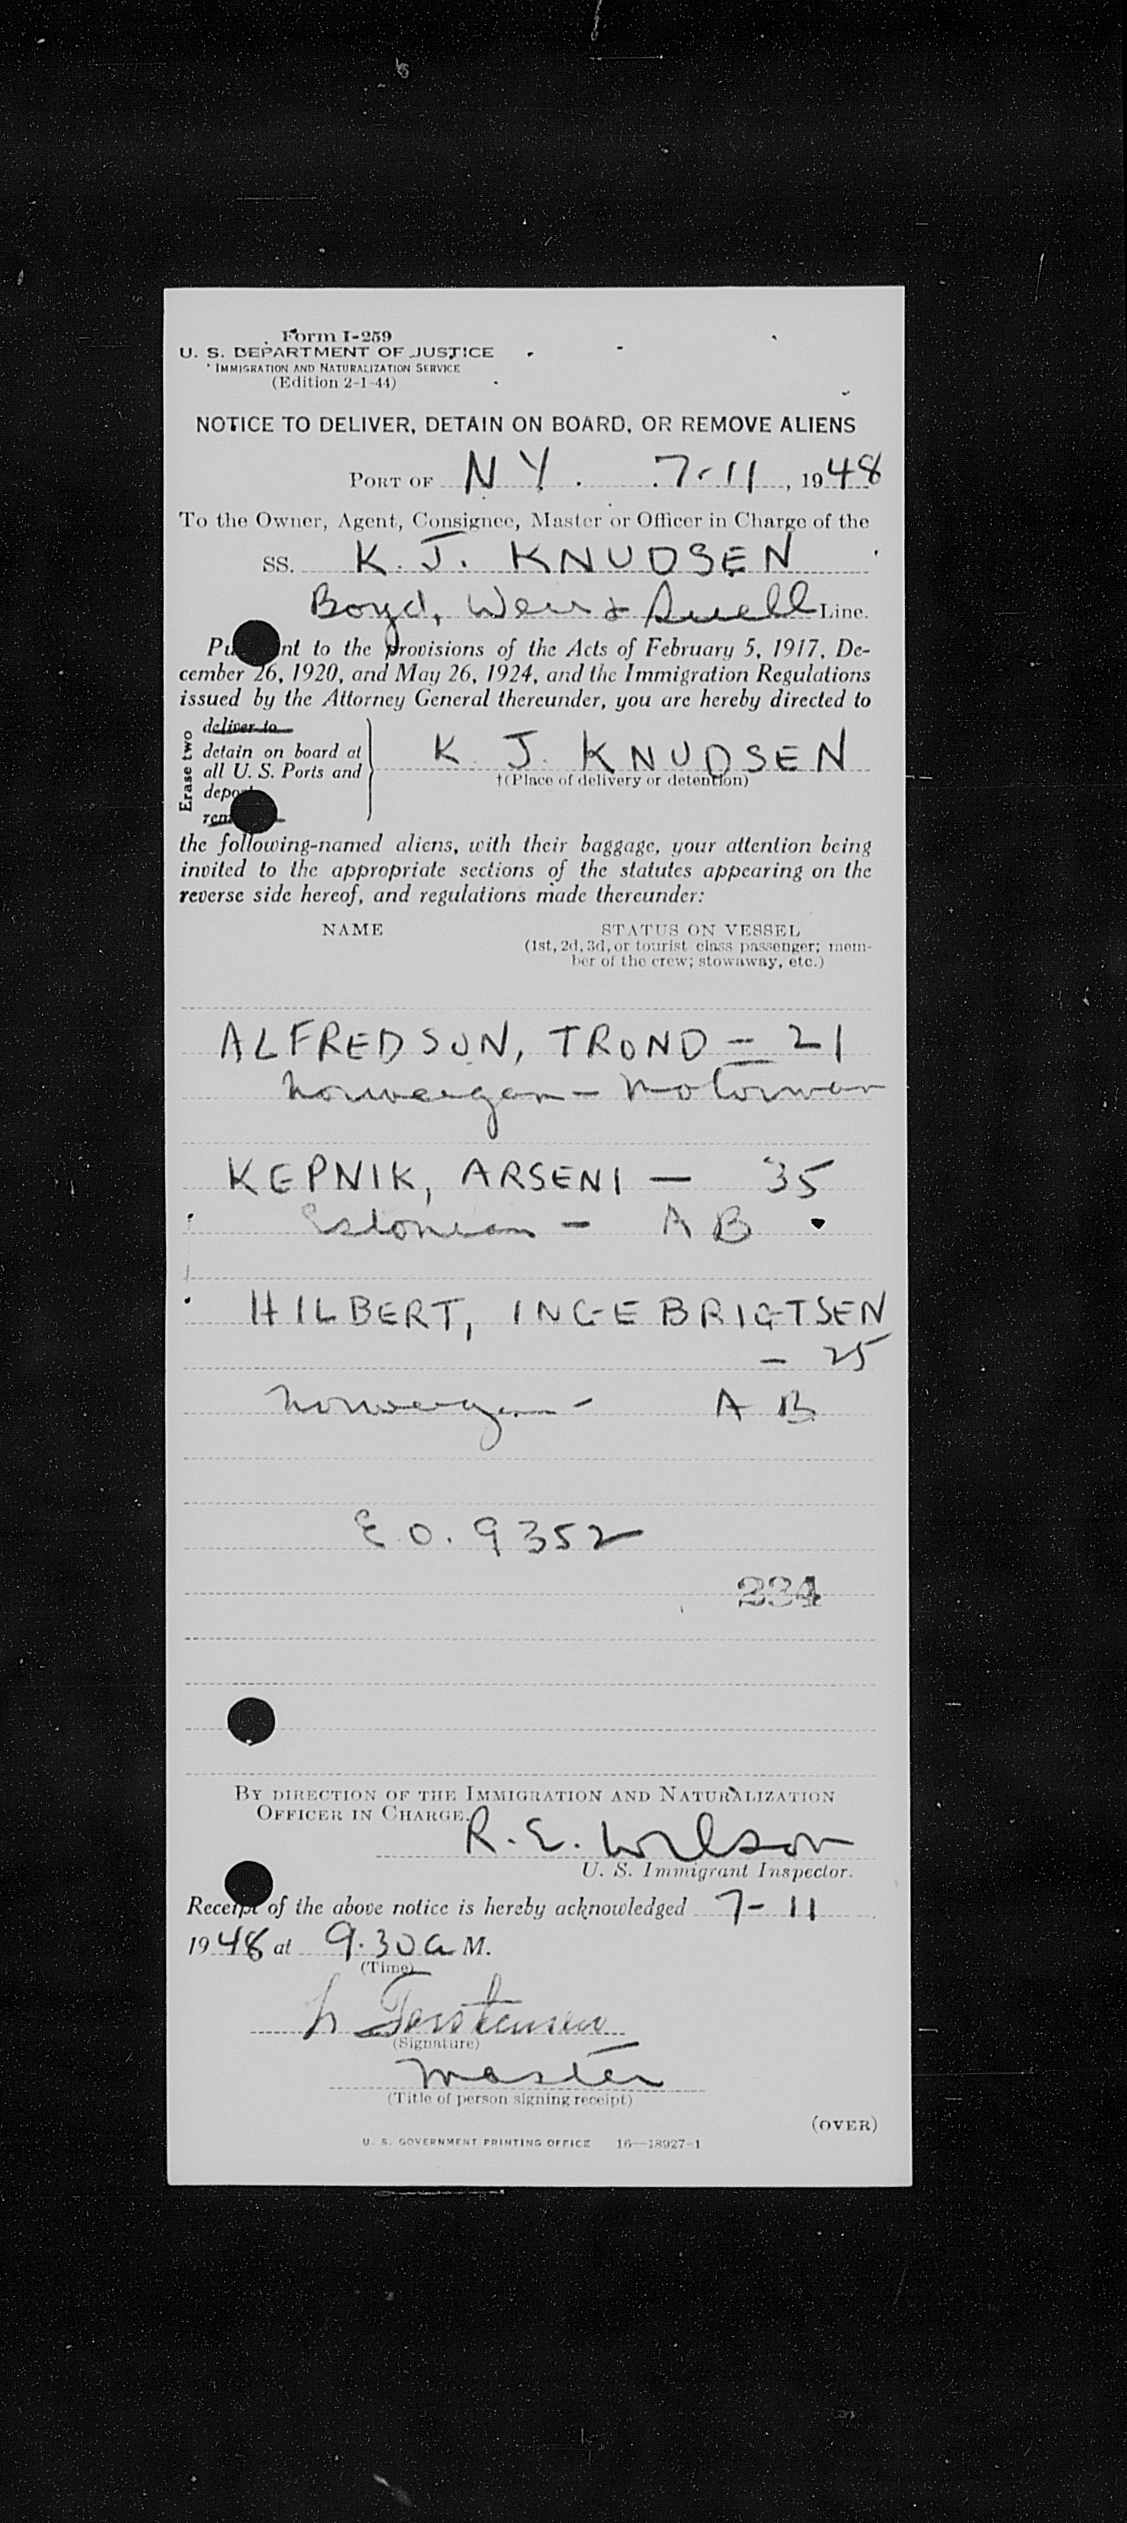 Form I-259
U. S. DEPARTMENT OF JUSTICE
IMMIGRATION AND NATURALIZATION SERVICE
(Edition 2-1-44)
NOTICE TO DELIVER, DETAIN ON BOARD, OR REMOVE ALIENS
PORT OF N Y. 7-11, 1948
To the Owner, Agent, Consignee, Master or Officer in Charge of the
SS. K. J. KNUDSEN
Boyd, Weir & Sewell Line.
Pu nt to the provisions of the Acts of February 5, 1917, De-
cember 26, 1920, and May 26, 1924, and the Immigration Regulations
issued by the Attorney General thereunder, you are hereby directed to
Erase two
deliver to
detain on board at
all U. S. Ports and
depo
rem
K. J. KNUDSEN
†(Place of delivery or detention)
the following-named aliens, with their baggage, your attention being
invited to the appropriate sections of the statutes appearing on the
reverse side hereof, and regulations made thereunder:
NAME STATUS ON VESSEL
(1st, 2d, 3d, or tourist class passenger; mem-
ber of the crew; stowaway, etc.)
ALFREDSON, TROND - 21
Norwegian - Motorman
KEPNIK, ARSENI - 35
Estonian - A B
HILBERT, INGEBRIGTSEN
- 25
Norwegian - A B
E.O. 9352
234
BY DIRECTION OF THE IMMIGRATION AND NATURALIZATION
OFFICER IN CHARGE.
R. E. Wilson
U. S. Immigrant Inspector.
Receipt of the above notice is hereby acknowledged 7-11
1948 at 9.30 a M.
(Time)
Torstensen
(Signature)
Master
(Title of person signing receipt)
(OVER)
U. S. GOVERNMENT PRINTING OFFICE 16—18927-1